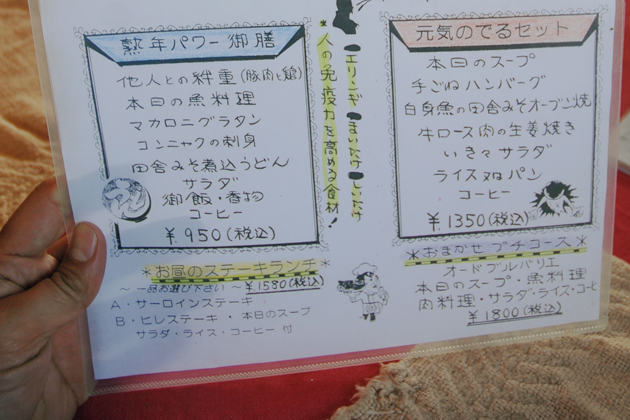 熟年パワー御膳
他人との絆重(豚肉と鶏)
本日の魚料理
マカロニグラタン
コンニャクの刺身
田舎みそ煮込うどん
サラダ
御飯・香物
コーヒー
¥950(税込)
*お昼のステーキランチ*
〜一品お選び下さい〜 ¥1580(税込)
A・サーロインステーキ
B・ヒレステーキ・本日のスープ
サラダ・ライス・コーヒー付
エリンギ まいたけ しいたけ
*人の免疫力を高める食材!
元気のでるセット
本日のスープ
手ごねハンバーグ
白身魚の田舎みそオーブン焼
牛ロース肉の生姜焼き
いき々サラダ
ライス又はパン
コーヒー
¥1350(税込)
*おまかせプチコース*
オードブルバリエ
本日のスープ・魚料理
肉料理・サラダ・ライス・コーヒ
¥1800(税込)